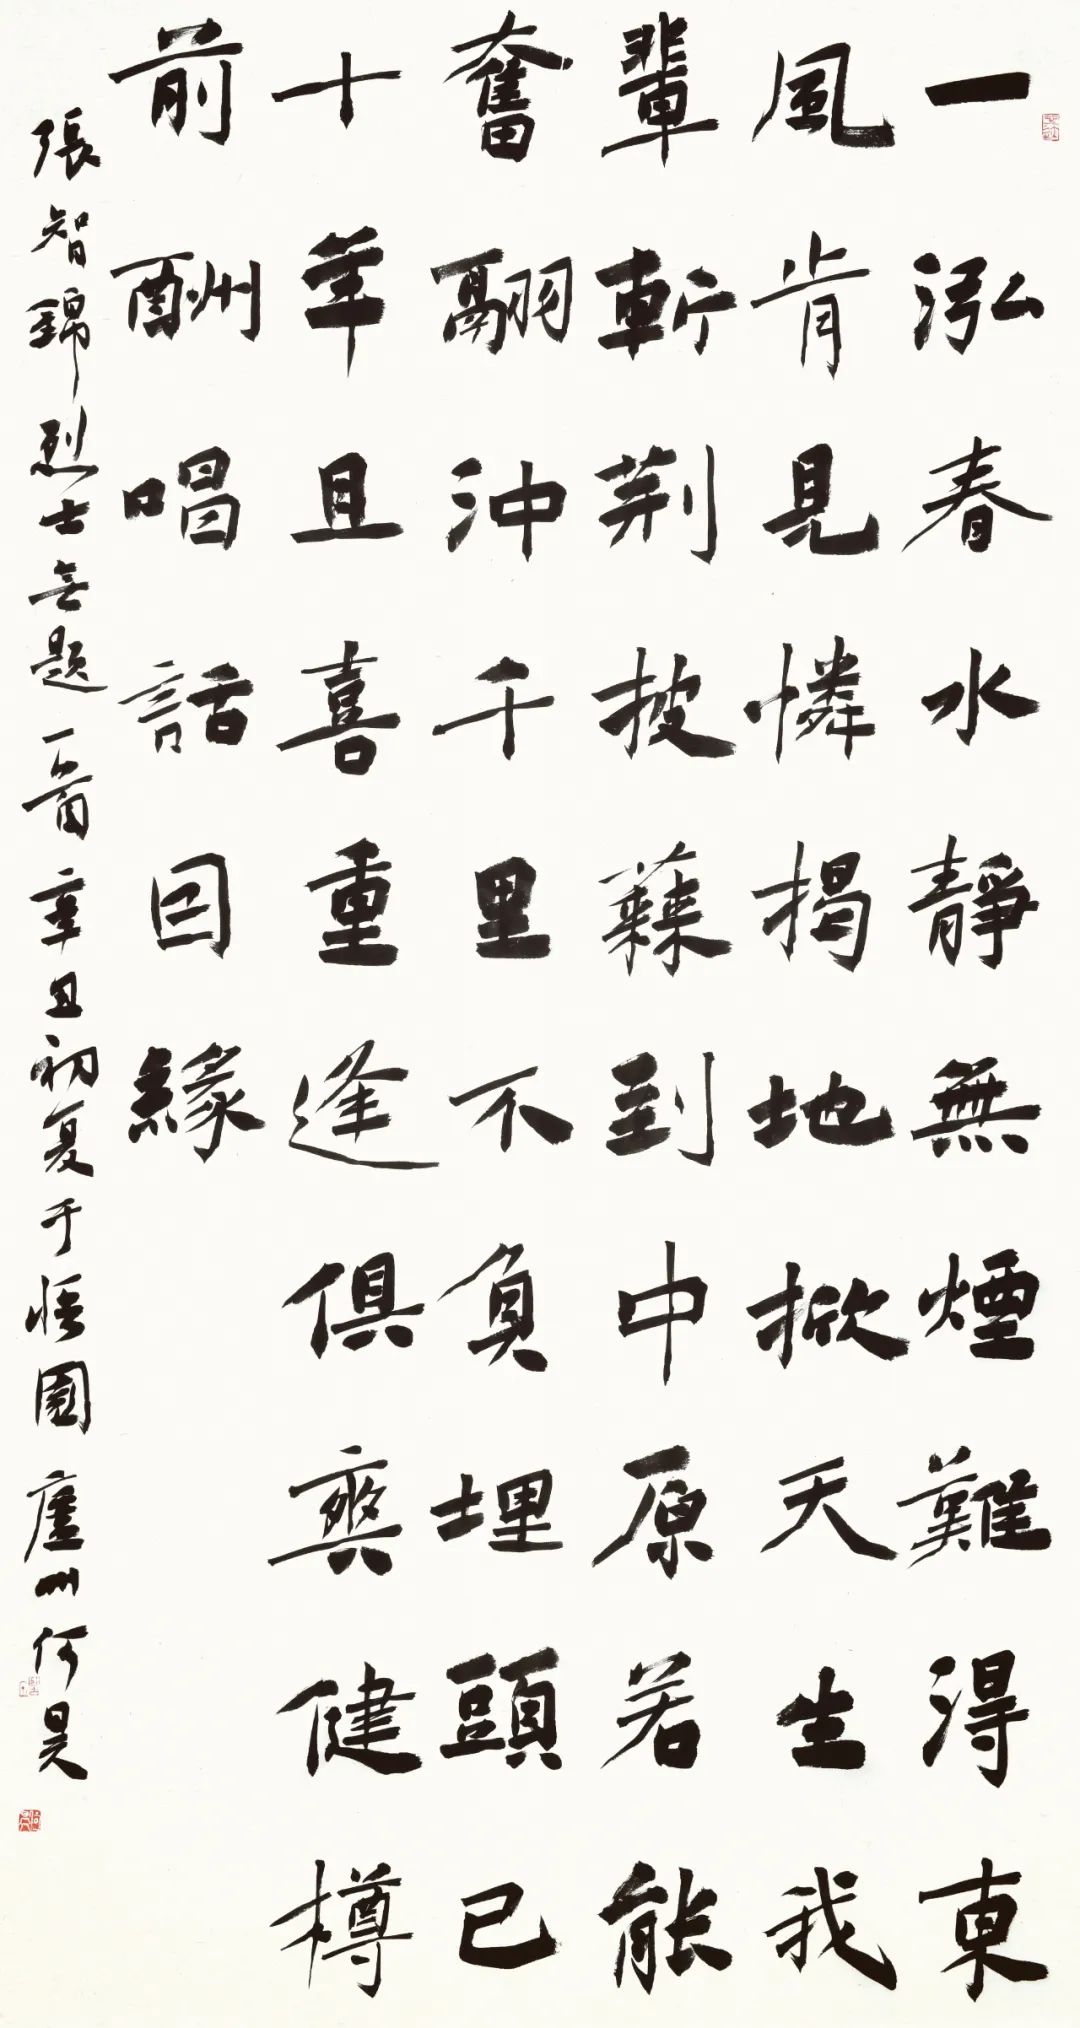 一泓春水靜無煙難得東
風肯見憐揭地掀天生我
輩斬荊披蕀到中原若能
奮翮沖千里不負埋頭已
十年且喜重逢俱爽健樽
前酬唱話因緣
張智錦烈士無題一首辛丑初夏于悟園廬州何昊